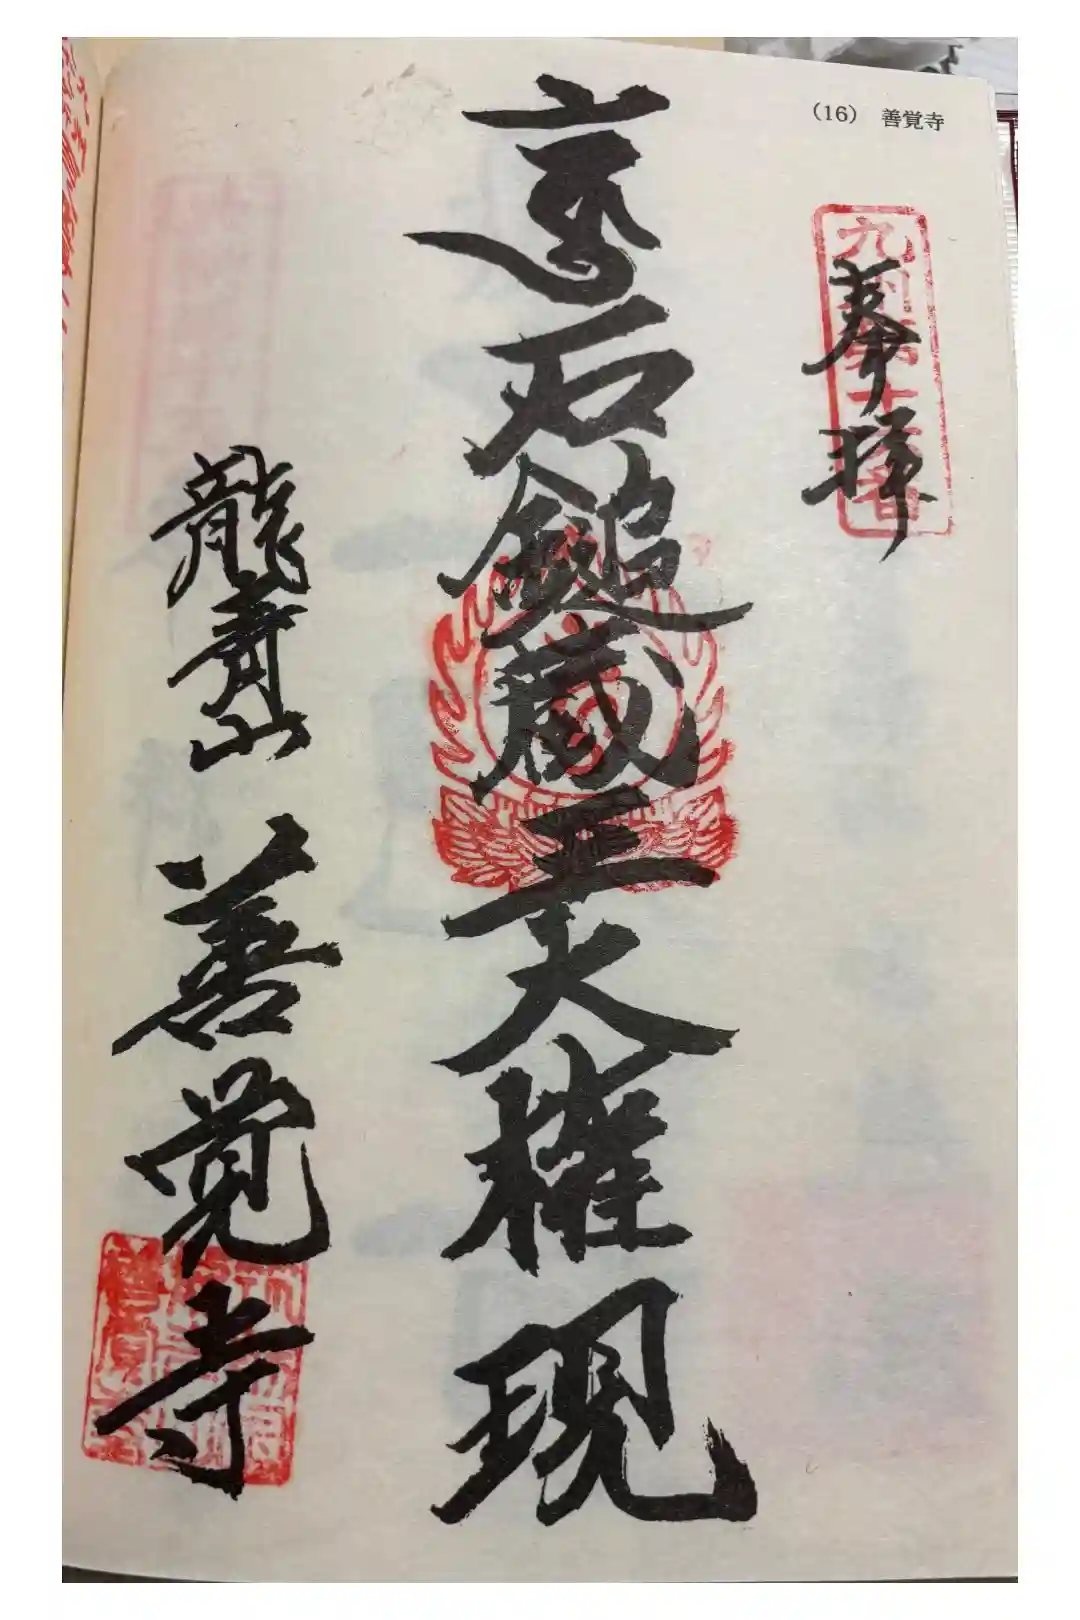 (16) 善覚寺
九州第十六番
奉拝
石鎚蔵王大権現
龍青山 善覚寺